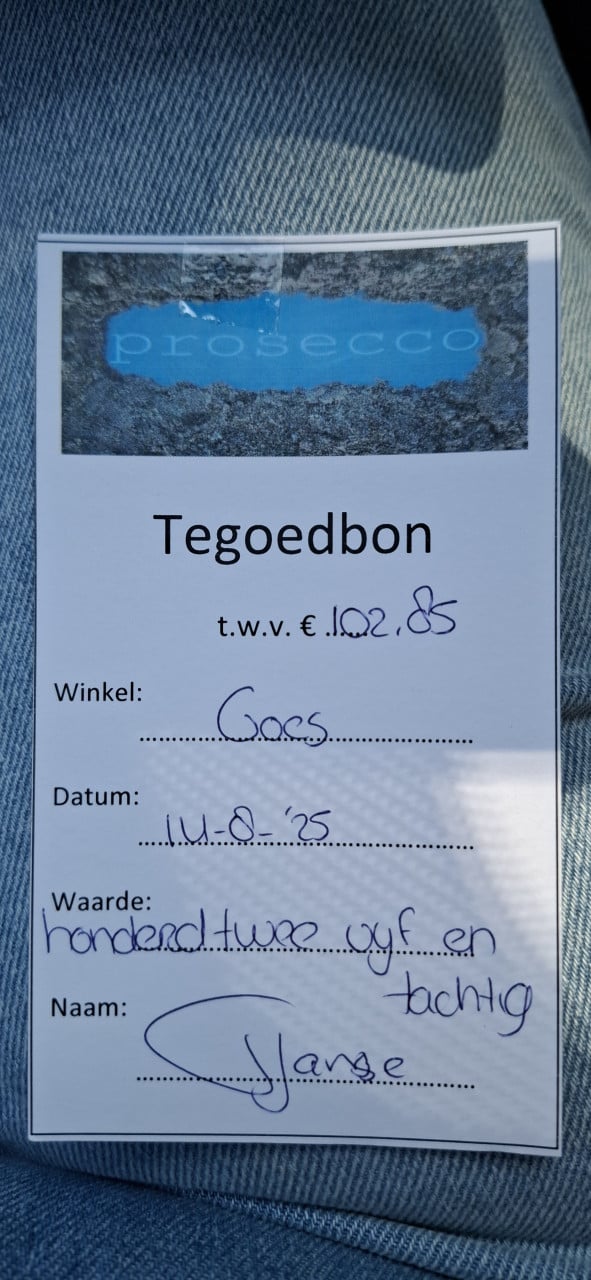 prosecco
Tegoedbon
t.w.v. € 102,85
Winkel: Goes
Datum: 14-8-'25
Waarde:
honderd twee vyf en
tachtig
Naam: